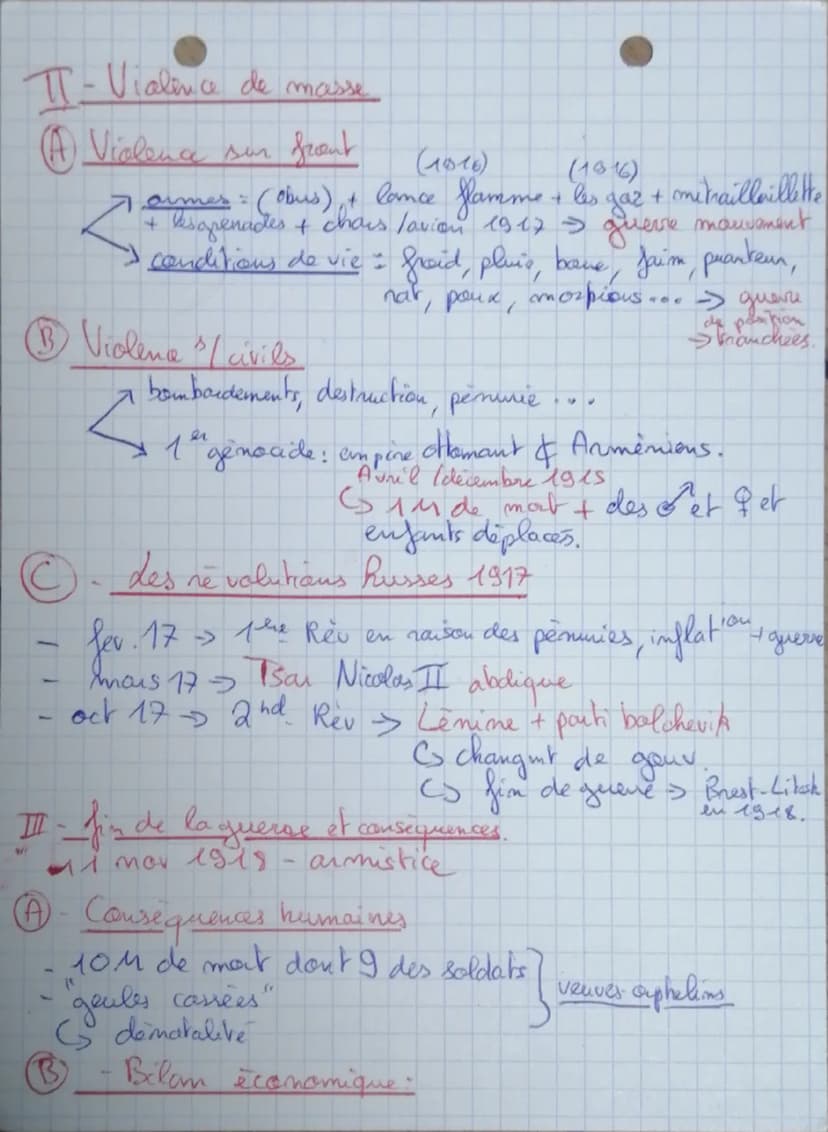 II - Violence de masse
A Violence sur front
(1916) (1916)
armes = (obus) + lance flamme + les gaz + mitrailleillette
+ les grenades + chars /avion 1917 → guerre mouvement
conditions de vie = froid, pluie, boue, faim, puanteur,
rat, poux, morpions... → guerre
de position
→ tranchées.
B Violence s/ civils
bombardements, destruction, pénurie ...
1er génocide : empire ottomant & Arméniens.
Avril /décembre 1915
↳ 1M de mort + des ♂ et ♀ et
enfants déplacés.
C - les révolutions Russes 1917
- fev. 17 → 1ère Rév en raison des pénuries, inflation + guerre
- mars 17 → Tsar Nicolas II abdique
- oct 17 → 2nd. Rév → Lénine + parti bolchevik
↳ changmt de gouv.
↳ fin de guerre → Brest-Litosk
en 1918.
III - fin de la guerre et conséquences.
11 nov 1918 - armistice
A - Conséquences humaines
- 10M de mort dont 9 des soldats
- "geules cassées" } veuves-orphelins
↳ dénatalité
B - Bilan économique :